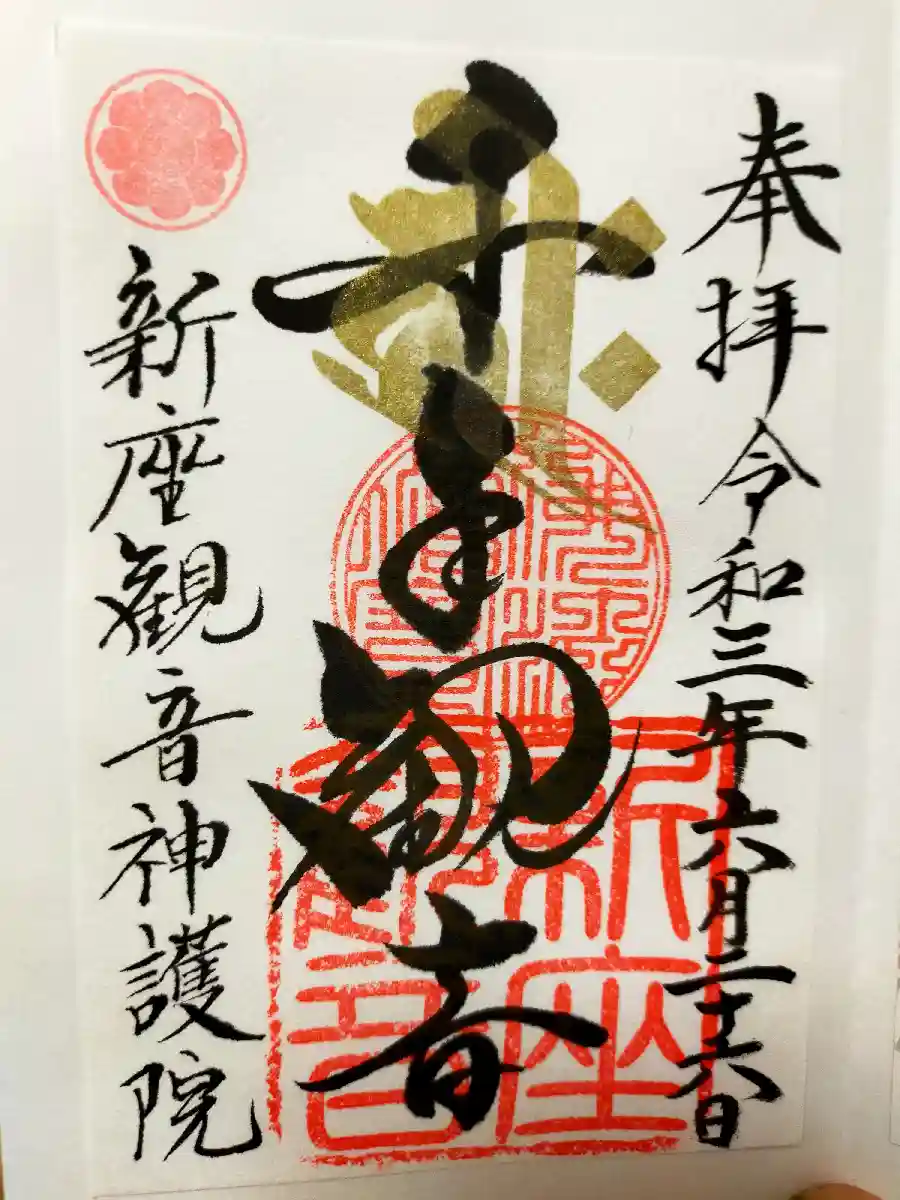 奉拝 令和三年六月二十六日
千手観音
新座観音神護院
新座
観音